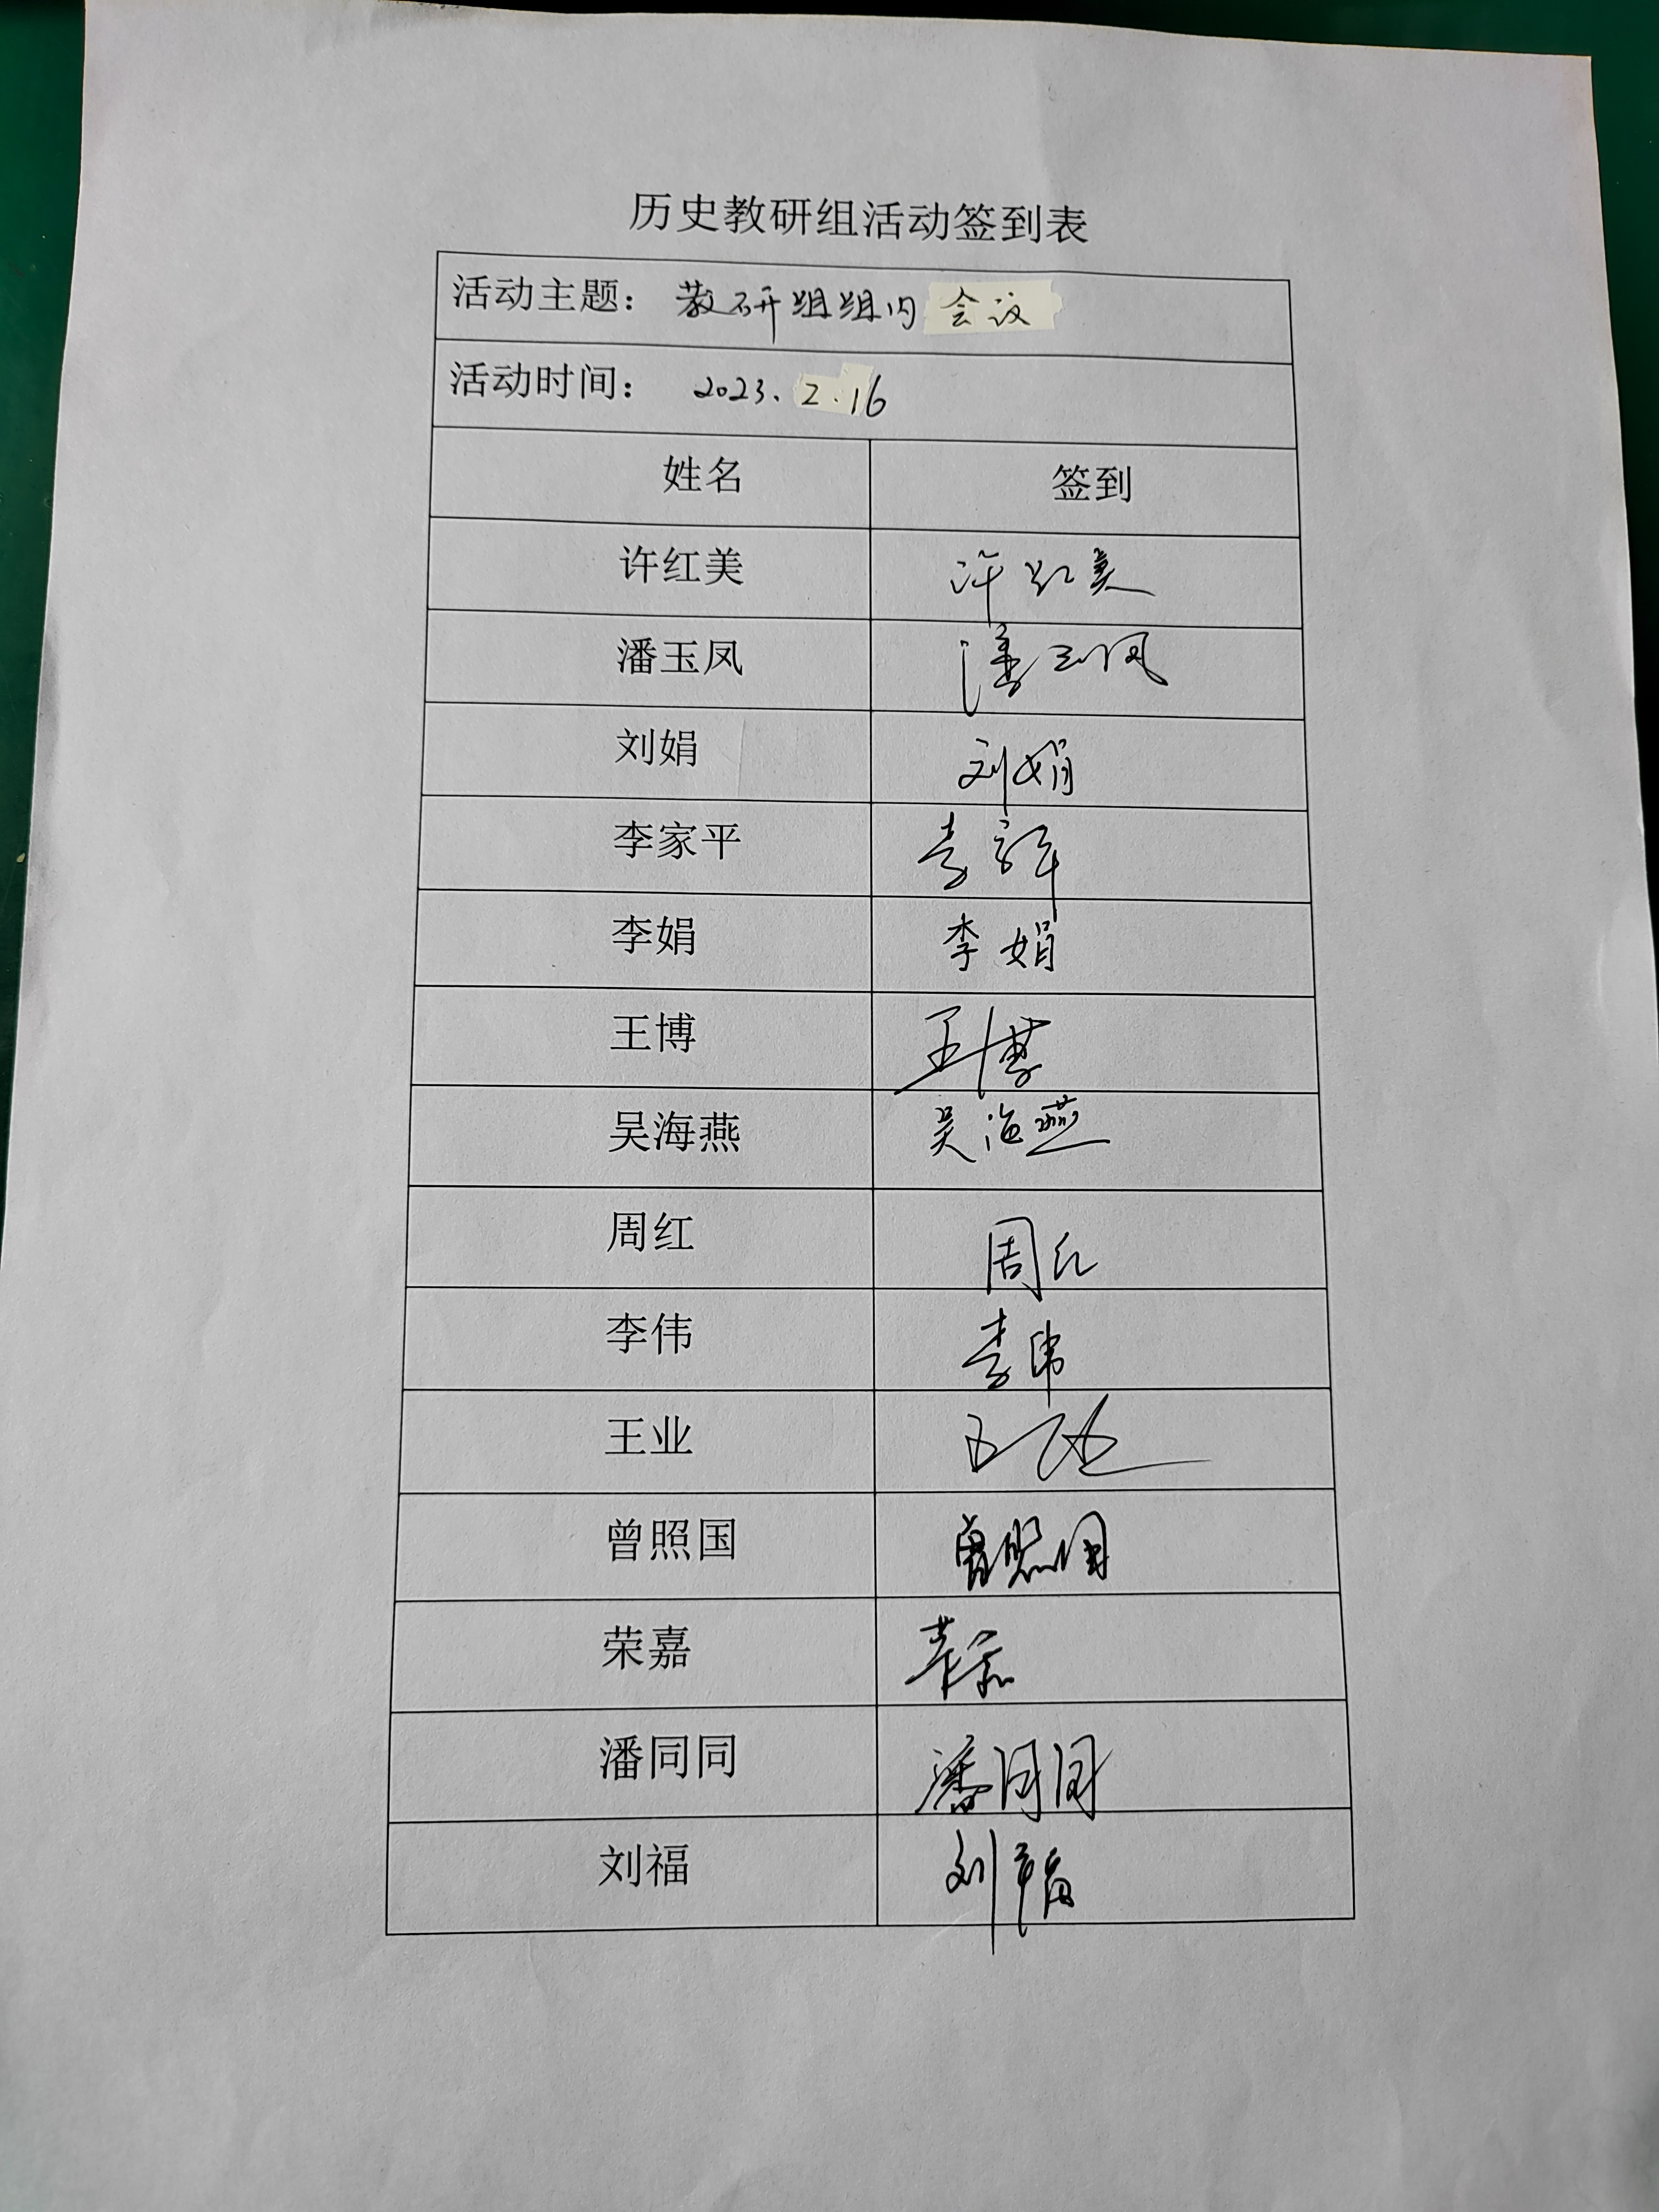 历史教研组活动签到表
活动主题：教研组组内会议
活动时间：2023.2.16
姓名 签到
许红美 许红美
潘玉凤 潘玉凤
刘娟 刘娟
李家平 李家平
李娟 李娟
王博 王博
吴海燕 吴海燕
周红 周红
李伟 李伟
王业 王业
曾照国 曾照国
荣嘉 荣嘉
潘同同 潘同同
刘福 刘福